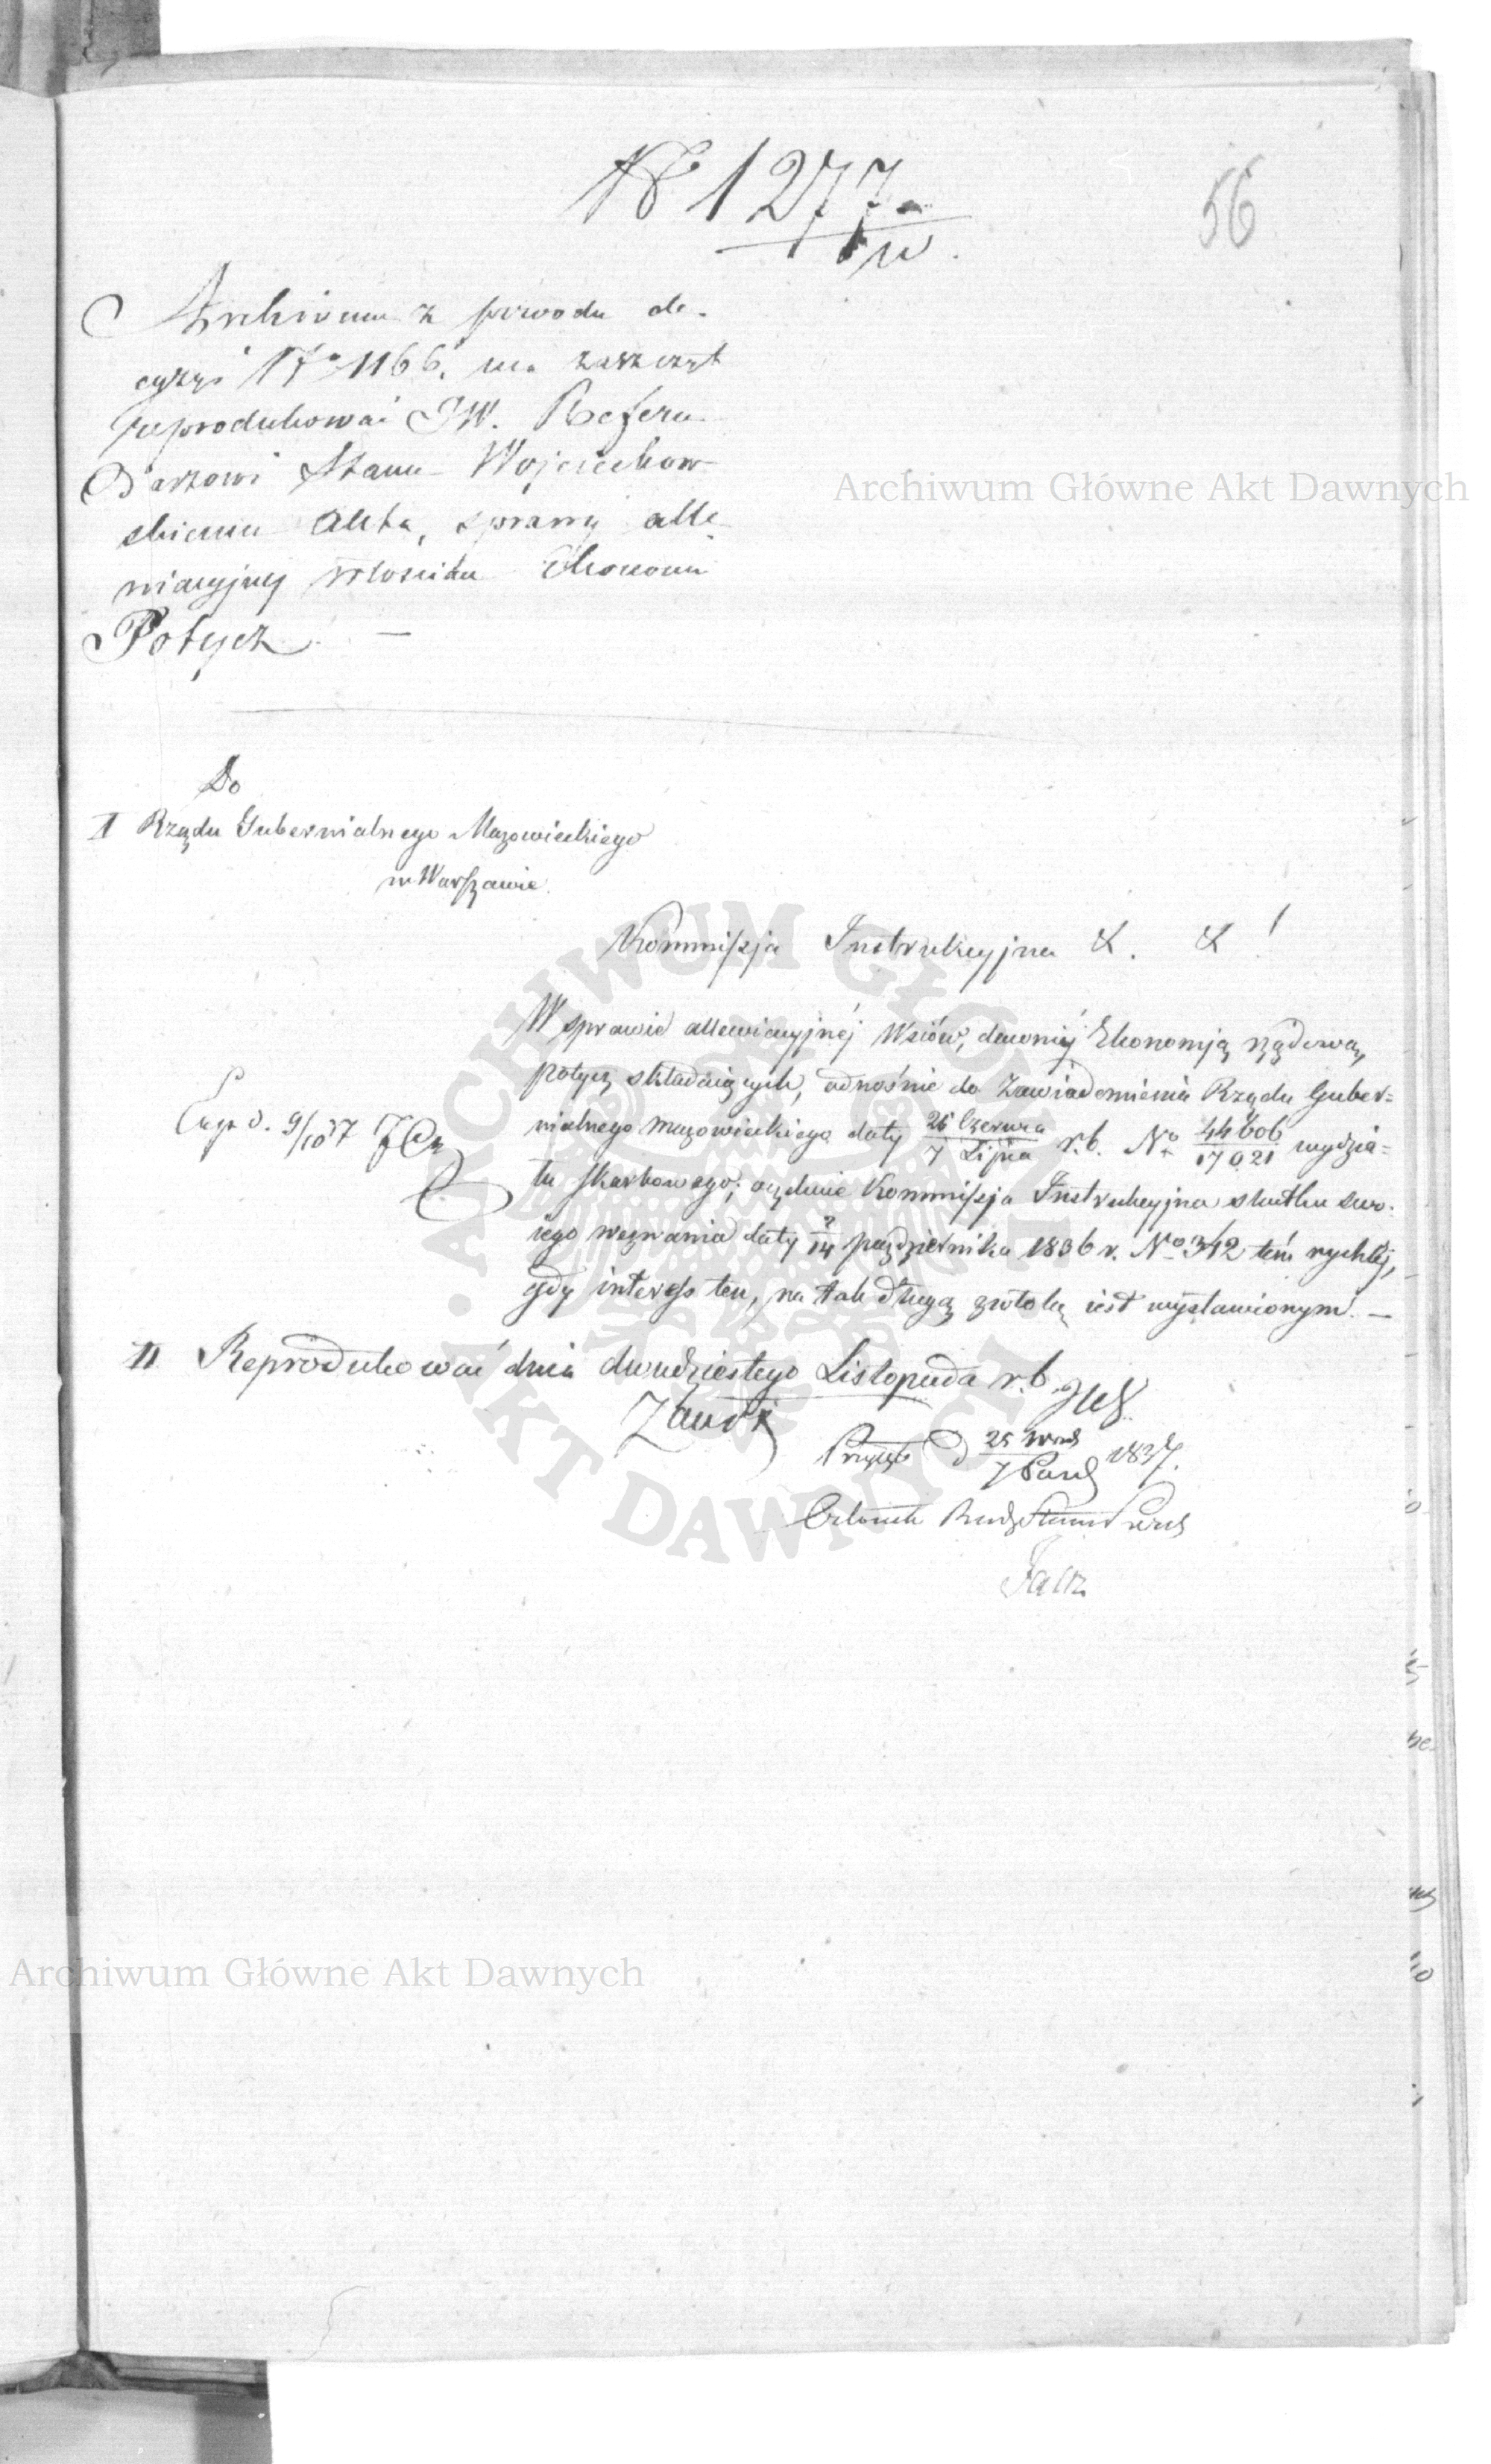 № 1277
w.
56
Archiwum z powodu de-
cyzyi № 1166. ma zaszczyt
reprodukować JW. Refern
darzowi Stanu Wojciechow
skiemu Akta, sprawy alle-
wiacyjnej Włościan Ekonomii
Potycz. —
Archiwum Główne Akt Dawnych
Do
I Rządu Gubernialnego Mazowieckiego
w Warszawie.
Kommissja Instrukcyjna &. &!
W sprawie allewiacyjnéj Wsiów, dawniéj Ekonomją rządową,
Potycz składających, odnośnie do Zawiadomienia Rządu Guber=
nialnego Mazowieckiego daty 25 Czerwca / 7 Lipca r.b. No 44606 / 17021 wydzia=
łu Skarbowego; oczekuie Kommissja Instrukcyjna skutku swo-
iego wezwania daty 2/14 października 1836 r. No 342 tém rychléj,
gdy interess ten, na tak długą zwłokę iest wystawionym. —
Exp. d. 9/10 37
II Reprodukować dnia dwudziestego Listopada r.b.
25 / 7 1837.
Członek Rady Stanu
Archiwum Główne Akt Dawnych
ARCHIWUM GŁÓWNE AKT DAWNYCH